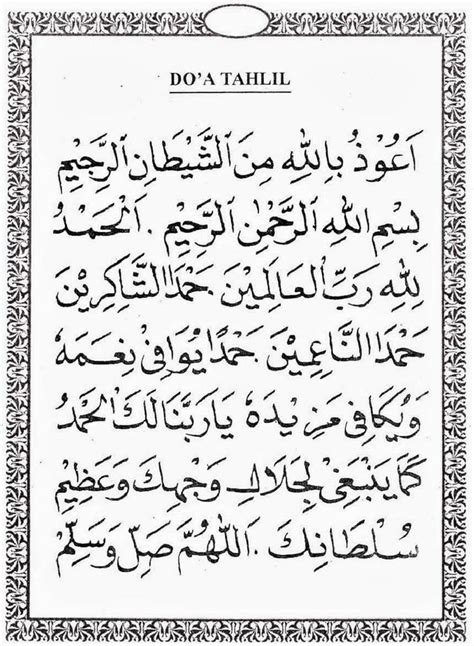 DO'A TAHLIL
اَعُوْذُ بِاللهِ مِنَ الشَّيْطَانِ الرَّجِيْمِ
بِسْمِ اللهِ الرَّحْمٰنِ الرَّحِيْمِ . اَلْحَمْدُ
لِلّٰهِ رَبِّ الْعَالَمِيْنَ . حَمْدَ الشَّاكِرِيْنَ
حَمْدَ النَّاعِمِيْنَ . حَمْدًا يُوَافِى نِعَمَهُ
وَيُكَافِى مَزِيْدَهُ يَا رَبَّنَا لَكَ الْحَمْدُ
كَمَا يَنْبَغِى لِجَلَالِ وَجْهِكَ وَعَظِيْمِ
سُلْطَانِكَ . اَللّٰهُمَّ صَلِّ وَسَلِّمْ